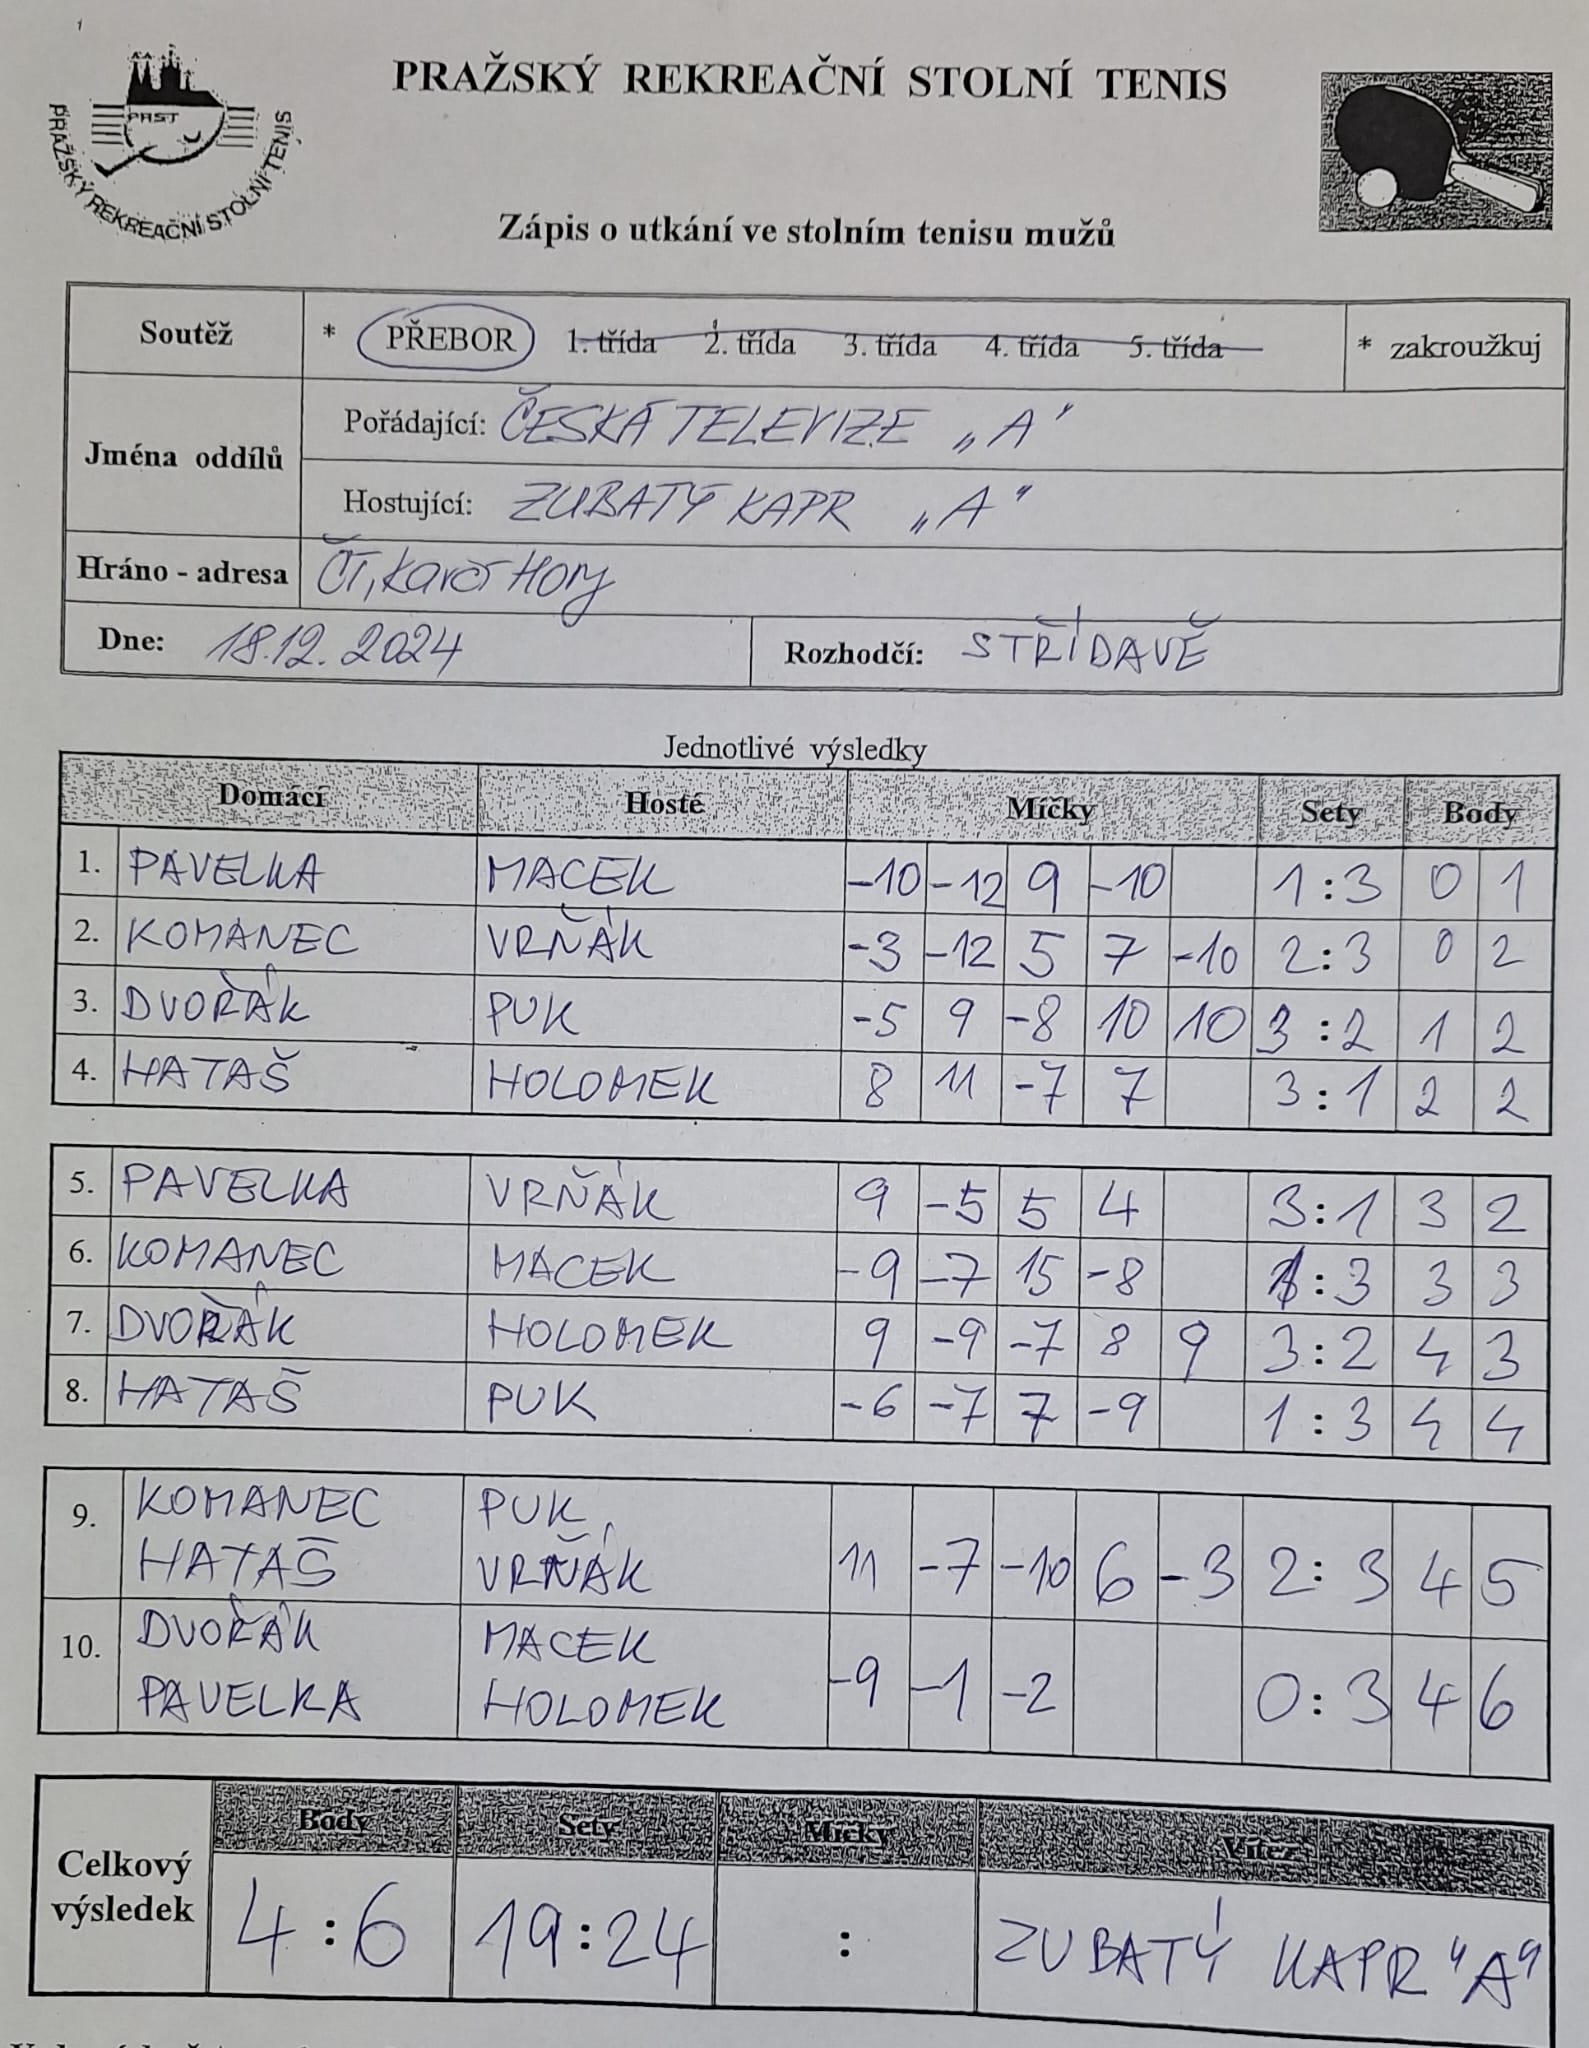 PRAŽSKÝ REKREAČNÍ STOLNÍ TENIS
PRST
PRAŽSKÝ REKREAČNÍ STOLNÍ TENIS
Zápis o utkání ve stolním tenisu mužů
Soutěž * PŘEBOR 1. třída 2. třída 3. třída 4. třída 5. třída * zakroužkuj
Jména oddílů
Pořádající: ČESKÁ TELEVIZE „A"
Hostující: ZUBATÝ KAPR „A"
Hráno - adresa ČT, Kavčí Hory
Dne: 18.12.2024 Rozhodčí: STŘÍDAVĚ
Jednotlivé výsledky
Domácí Hosté Míčky Sety Body
1. PAVELKA MACEK -10 -12 9 -10 1:3 0 1
2. KOMANEC VRŇÁK -3 -12 5 7 -10 2:3 0 2
3. DVOŘÁK PUK -5 9 -8 10 10 3:2 1 2
4. HATAŠ HOLOMEK 8 11 -7 7 3:1 2 2
5. PAVELKA VRŇÁK 9 -5 5 4 3:1 3 2
6. KOMANEC MACEK -9 -7 15 -8 1:3 3 3
7. DVOŘÁK HOLOMEK 9 -9 -7 8 9 3:2 4 3
8. HATAŠ PUK -6 -7 7 -9 1:3 4 4
9. KOMANEC PUK
HATAŠ VRŇÁK 11 -7 -10 6 -3 2:3 4 5
10. DVOŘÁK MACEK
PAVELKA HOLOMEK -9 -1 -2 0:3 4 6
Celkový výsledek
Body Sety Míčky Vítěz
4:6 19:24 : ZUBATÝ KAPR "A"